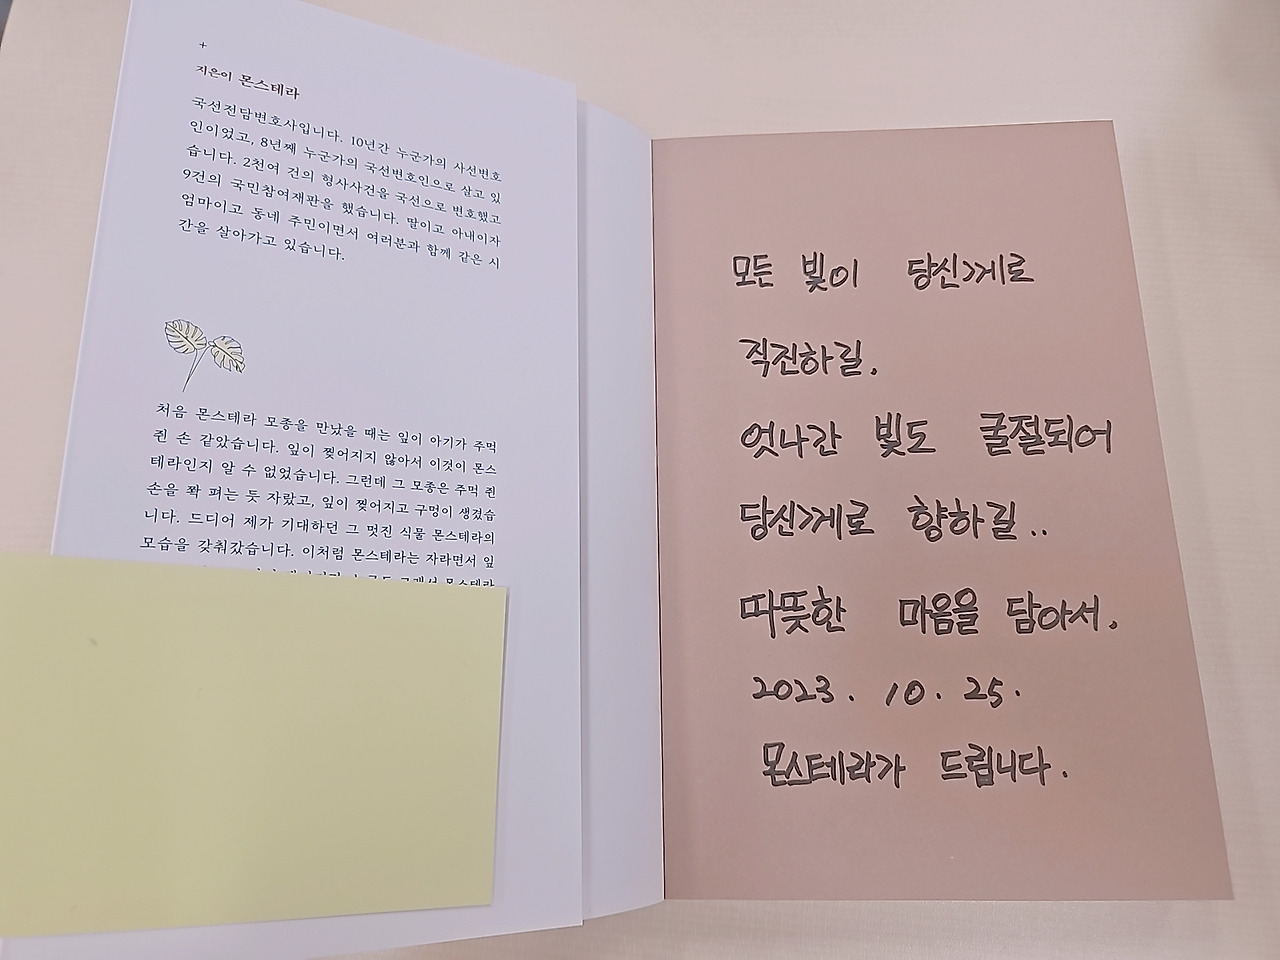 +
지은이 몬스테라
국선전담변호사입니다. 10년간 누군가의 사선변호
인이었고, 8년째 누군가의 국선변호인으로 살고 있
습니다. 2천여 건의 형사사건을 국선으로 변호했고
9건의 국민참여재판을 했습니다. 딸이고 아내이자
엄마이고 동네 주민이면서 여러분과 함께 같은 시
간을 살아가고 있습니다.
처음 몬스테라 모종을 만났을 때는 잎이 아기가 주먹
쥔 손 같았습니다. 잎이 찢어지지 않아서 이것이 몬스
테라인지 알 수 없었습니다. 그런데 그 모종은 주먹 쥔
손을 쫙 펴는 듯 자랐고, 잎이 찢어지고 구멍이 생겼습
니다. 드디어 제가 기대하던 그 멋진 식물 몬스테라의
모습을 갖춰갔습니다. 이처럼 몬스테라는 자라면서 잎
몬스테라
모든 빛이 당신에게로
직진하길.
엇나간 빛도 굴절되어
당신에게로 향하길..
따뜻한 마음을 담아서.
2023. 10. 25.
몬스테라가 드립니다.